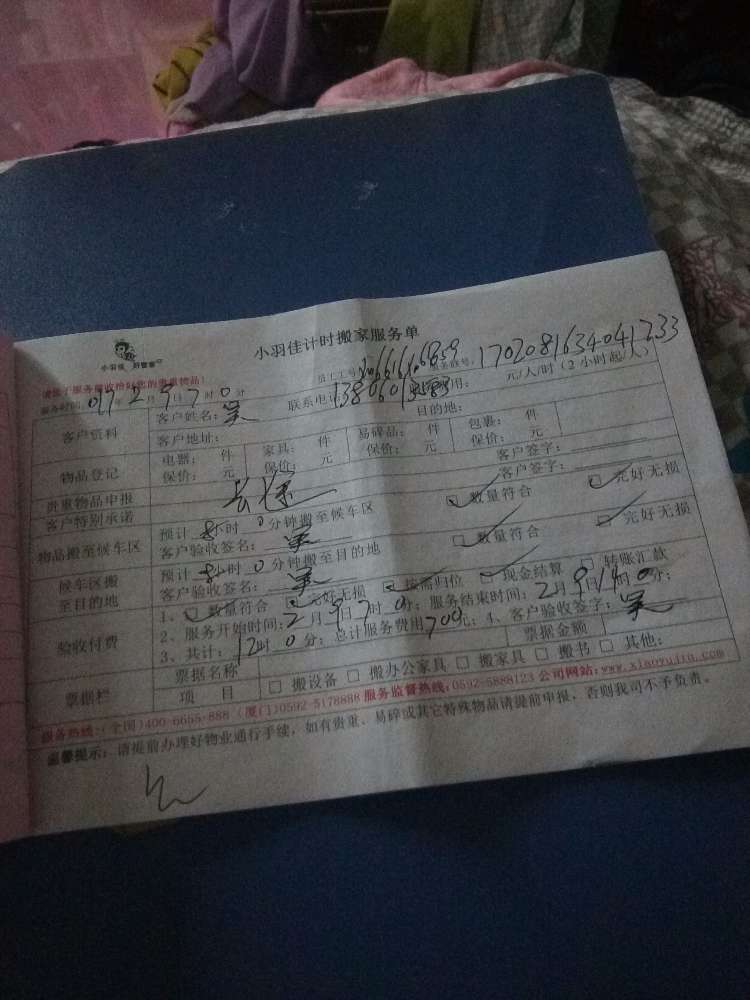 小羽佳计时搬家服务单
小羽佳
请孩子服务验收恰好您的贵重物品!
员工工号: 服务账号: 1702081634041233
服务时间: 年 2 月 9 日 7 时 0 分 联系电话: 费用: 元/人/时 (2小时起/人)
客户资料 客户姓名: 吴 目的地:
客户地址:
物品登记 电器: 件 家具: 件 易碎品: 件 包裹: 件
保价: 元 保价: 元 保价: 元 保价: 元
贵重物品申报 客户签字:
客户特别承诺 客户签字:
物品搬至候车区 预计 小时 0 分钟搬至候车区 数量符合 完好无损
客户验收签名: 吴
候车区搬至目的地 预计 小时 0 分钟搬至目的地 数量符合 完好无损
客户验收签名: 吴
验收付费 1、 数量符合 完好无损 按需归位 现金结算 转账汇款
2、服务开始时间: 2 月 9 日 7 时 0 分; 服务结束时间: 2 月 9 日 19 时 0 分;
3、共计: 12 时 0 分; 总计服务费用 700 元; 4、客户验收签字: 吴
票据栏 票据名称 票据金额
项 目 □ 搬设备 □ 搬办公家具 □ 搬家具 □ 搬书 □ 其他:
服务热线: (全国)400-6655-888 (厦门)0592-5178888 服务监督热线: 0592-5888123 公司网站: www.xiaoyujia.com
温馨提示: 请提前办理好物业通行手续, 如有贵重、易碎或其它特殊物品请提前申报, 否则我司不予负责。